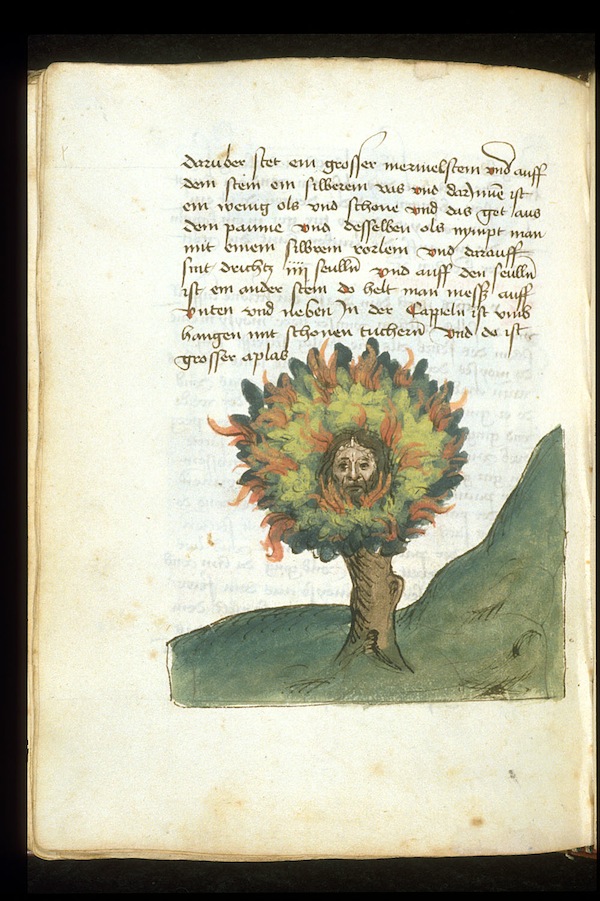 daruber stet ein grosser mermelstein vnd auff
dem stein ein silberein vas vnd dar Jnne ist
ein wenig ols vnd schone vnd das get aus
dem paume vnd desselben ols nympt man
mit einem silbrein rorlein vnd darauff
sint drichtz iiii seulln vnd auff den seulln
ist ein ander stein do helt man messz auff
vnten vnd neben Jn der Cappelln ist vmb
hangen mit schonen tuchern vnd do ist
grosser aplas